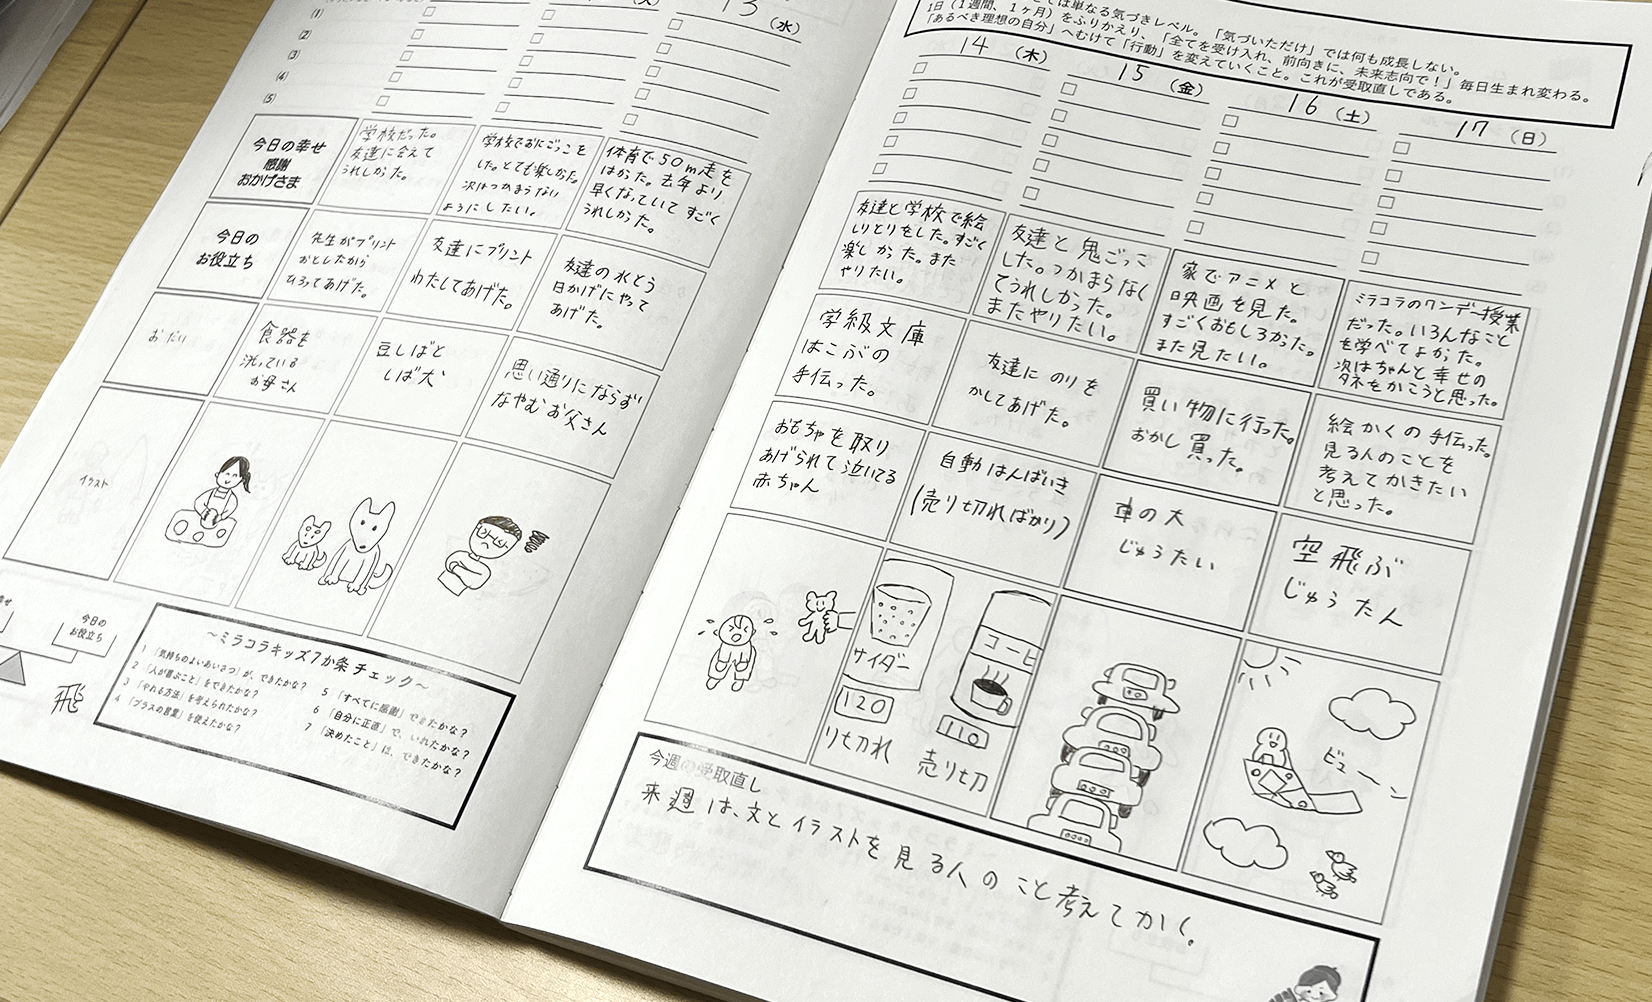 (1)
(2)
(3)
(4)
(5)
13 (水)
今日の幸せ
感謝
おかげさま
学校だった。
友達に会えて
うれしかった。
学校でおにごっこを
した。とても楽しかった。
次はつかまらない
ようにしたい。
体育で50m走を
はかった。去年より
早くなっていてすごく
うれしかった。
今日の
お役立ち
先生がプリント
おとしたから
ひろってあげた。
友達にプリント
わたしてあげた。
友達の水とう
日かげにやって
あげた。
食器を
洗っている
お母さん
豆しばと
しば犬
思い通りにならず
なやむお父さん
イラスト
今日の
お役立ち
飛
～ミラコラキッズ7か条 チェック～
1 「気持ちのよいあいさつ」が、できたかな?
2 「人が喜ぶこと」をできたかな?
3 「やれる方法」を考えられたかな?
4 「プラスの言葉」を使えたかな?
5 「すべてに感謝」できたかな?
6 「自分に正直」で、いれたかな?
7 「決めたこと」は、できたかな?
は単なる気づきレベル。「気づいただけ」では何も成長しない。
1日(1週間、1ヶ月)をふりかえり、「全てを受け入れ、前向きに、未来志向で!」毎日生まれ変わる。
「あるべき理想の自分」へむけて「行動」を変えていくこと。これが受取直しである。
14 (木)
15 (金)
16 (土)
17 (日)
友達と学校で絵
しりとりをした。すごく
楽しかった。また
やりたい。
友達と鬼ごっこ
した。つかまらなく
てうれしかった。
またやりたい。
家でアニメと
映画を見た。
すごくおもしろかった。
また見たい。
ミラコラのワンデー授業
だった。いろんなこと
を学べてよかった。
次はちゃんと幸せの
タネをかこうと思った。
学級文庫
はこぶの
手伝った。
友達にのりを
かしてあげた。
買い物に行った。
おかし買った。
絵かくの手伝った。
見る人のことを
考えてかきたい
と思った。
おもちゃを取り
あげられて泣いてる
赤ちゃん
自動はんばいき
(売り切ればかり)
車の大
じゅうたい
空飛ぶ
じゅうたん
サイダー
120
り切れ
コーヒ
110
売り切
ビューン
今週の受取直し
来週は、文とイラストを見る人のこと考えてかく。